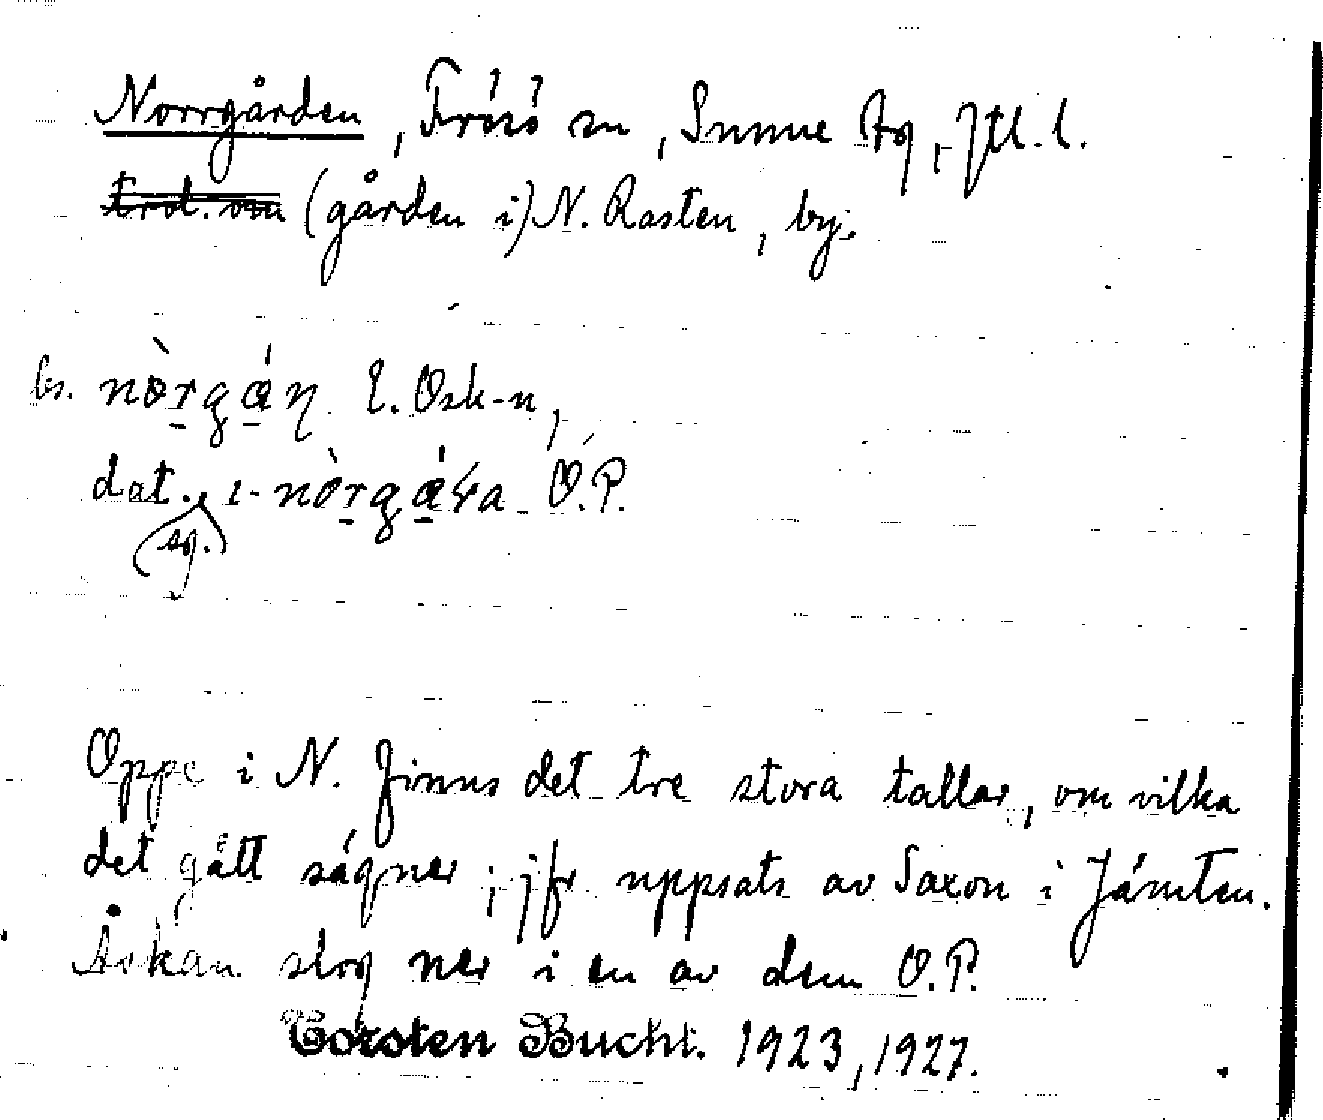 Norrgården, Frösö sn, Sunne tg, Jtl. l.
(gården i) N. Rasten, by.
bs. nòrgáṇ E. Osk-n,
dat. (sg.) ɪ-nòrgáɽa Ö.P.
Oppe i N. finns det tre stora tallar, om vilka
det gått sägner; jfr uppsats av Saxon i Jämten.
Åskan slog ner i en av dem Ö.P.
Torsten Bucht. 1923, 1927.